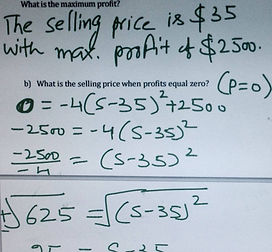 What is the maximum profit?
The selling price is $35
with max. profit of $2500.
b) What is the selling price when profits equal zero? (P=0)
0 = -4(S-35)²+2500
-2500 = -4(S-35)²
-2500/-4 = (S-35)²
√625 = √(S-35)²